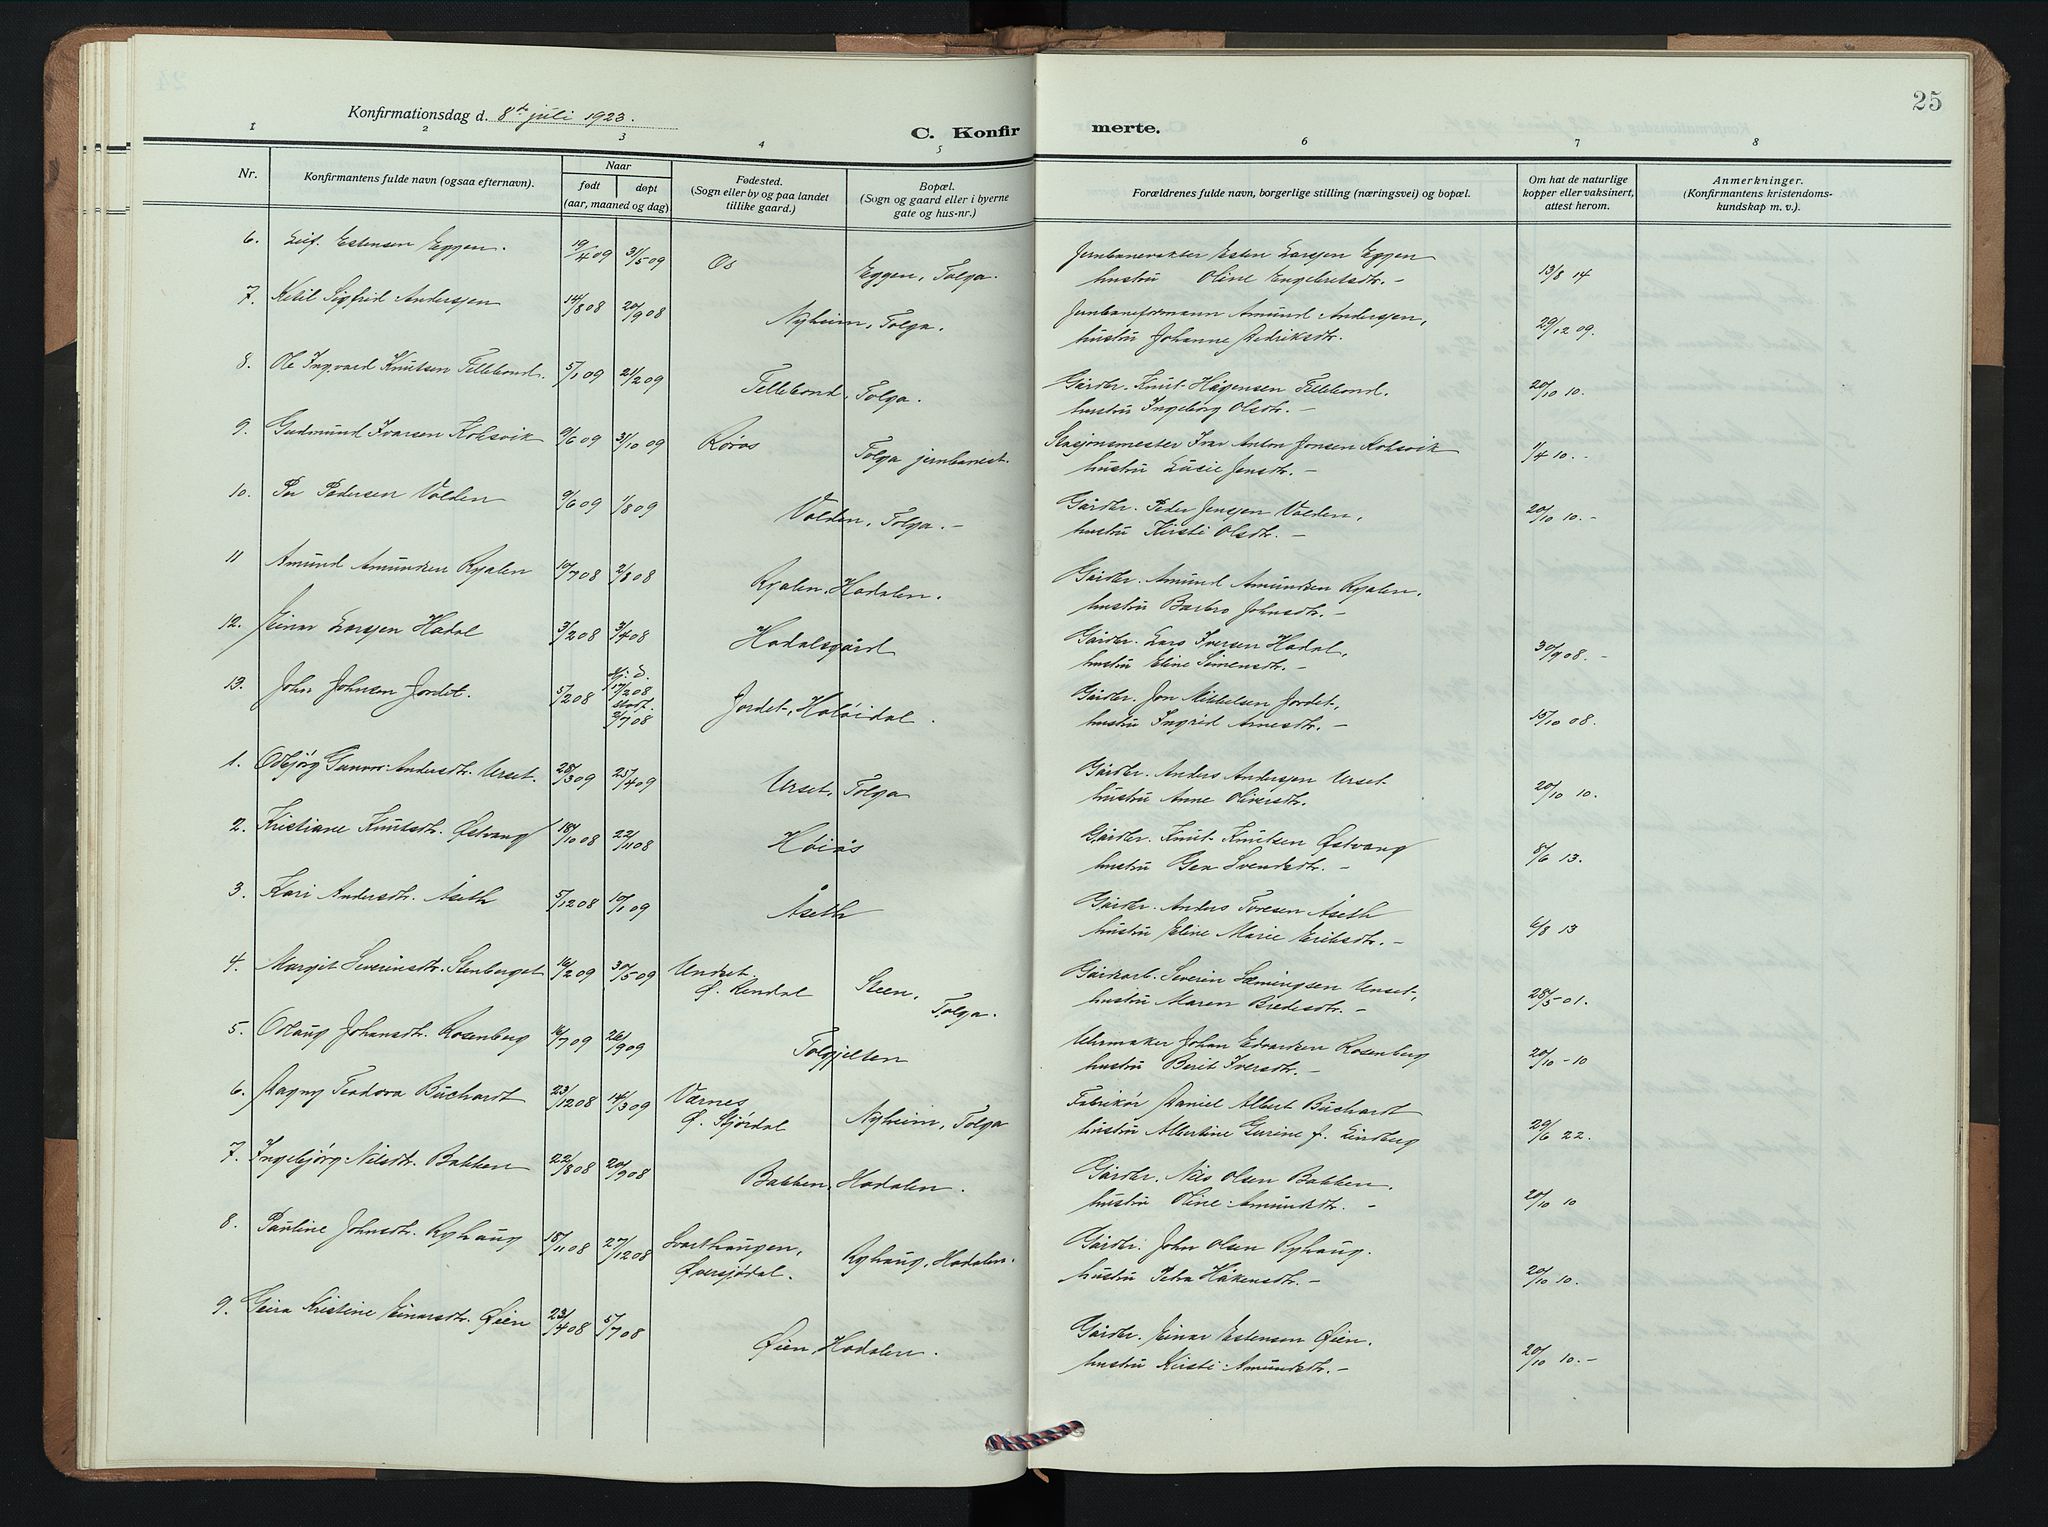 25
Konfirmationsdag d. 8de juli 1923.
C. Konfirmerte.
1 2 3 4 5 6 7 8
Nr. Konfirmantens fulde navn (ogsaa efternavn). Naar født døpt (aar, maaned og dag) Fødested. (Sogn eller by og paa landet tillike gaard.) Bopæl. (Sogn og gaard eller i byerne gate og hus-nr.) Forældrenes fulde navn, borgerlige stilling (næringsvei) og bopæl. Om hat de naturlige kopper eller vaksinert, attest herom. Anmerkninger. (Konfirmantens kristendomskundskap m. v.).
6. Leif Estensen Eggen. 19/4 09 31/5 09 Os Eggen, Tolga. Jernbanevakter Esten Larsen Eggen
hustru Oline Engebretsdtr. – 13/8 14
7. Ketil Sigfrid Andersen 14/8 08 20/9 08 Nyheim, Tolga. Jernbaneformann Amund Andersen,
hustru Johanne Pedriksdtr. 29/12 09.
8. Ole Ingvard Knutsen Tellebond. 5/1 09 21/2 09 Tellebond, Tolga. Gårdbr. Knut Hågensen Tellebond.
hustru Ingeborg Olsdtr. – 20/10 10.
9. Gudmund Ivarsen Kohsvik 9/6 09 31/10 09 Røros Tolga jernbanest. Stasjonsmester Ivar Anton Jonsen Kohsvik
hustru Lusie Jensdtr. – 1/4 10. –
10. Per Pedersen Volden 9/6 09 1/8 09 Volden, Tolga. – Gårdbr. Peder Jensen Volden,
hustru Kirsti Olsdtr. – 20/10 10. –
11 Amund Amundsen Ryalen 10/7 08 2/8 08 Ryalen, Hodalen. Gårdbr. Amund Amundsen Ryalen,
hustru Barbro Johnsdtr. –
12. Einar Larsen Hodal 3/2 08 3/4 08 Hodalsgård Gårdbr. Lars Iversen Hodal,
hustru Eline Simensdtr. – 30/9 08. –
13. John Johnsen Jordet. 5/2 08 hj. d. 17/2 08 stadf. 2/7 08 Jordet, Holøidal. Gårdbr. Jon Mikkelsen Jordet,
hustru Ingrid Arnesdtr. – 15/10 08.
1. Odbjørg Gunvor Andersdtr. Urset. 28/3 09 25/4 09 Urset, Tolga Gårdbr. Anders Andersen Urset
hustru Anne Oliversdtr. 20/10 10.
2. Kristiane Knutsdtr. Østvang 18/10 08 22/11 08 Høiås Gårdbr. Knut Knutsen Østvang
hustru Gea Svendsdtr. – 8/6 13.
3. Kari Andersdtr. Åseth 5/12 08 10/1 09 Åseth Gårdbr. Anders Toresen Åseth
hustru Eline Marie Eriksdtr. – 6/8 13
4. Margit Severinsdtr. Stenberget 16/2 09 30/5 09 Undset. Ø. Rendal Steen, Tolga. Gårdarb. Severin Lemingsen Unset,
hustru Maren Bredesdtr. – 28/5 01.
5. Odlaug Johansdtr. Rosenberg 16/7 09 26/9 09 Tolgjelten Uhrmaker Johan Edvardsen Rosenberg
hustru Berit Iversdtr. – 20/10 – 10
6. Dagny Teodora Buchardt 23/12 08 14/3 09 Værnes Ø. Stjørdal Nyheim, Tolga Fabrikør Daniel Albert Buchardt
hustru Albertine Gurine f. Lindberg 29/6 22.
7. Ingebjørg Nilsdtr. Bakken 22/8 08 20/9 08 Bakken, Hodalen. Gårdbr. Nils Olsen Bakken.
hustru Oline Amundsdtr. – 20/10 10
8. Pauline Johnsdtr. Ryhaug 18/11 08 27/12 08 Svarthaugen, Øversjødal. Ryhaug, Hodalen. Gårdbr. John Olsen Ryhaug.
hustru Petra Håkensdtr. – 20/10 10.
9. Geira Kristine Einarsdtr. Øien 23/4 08 5/7 08 Øien, Hodalen. Gårdbr. Einar Estensen Øien.
hustru Kirsti Amundsdtr. – 20/10 10. –